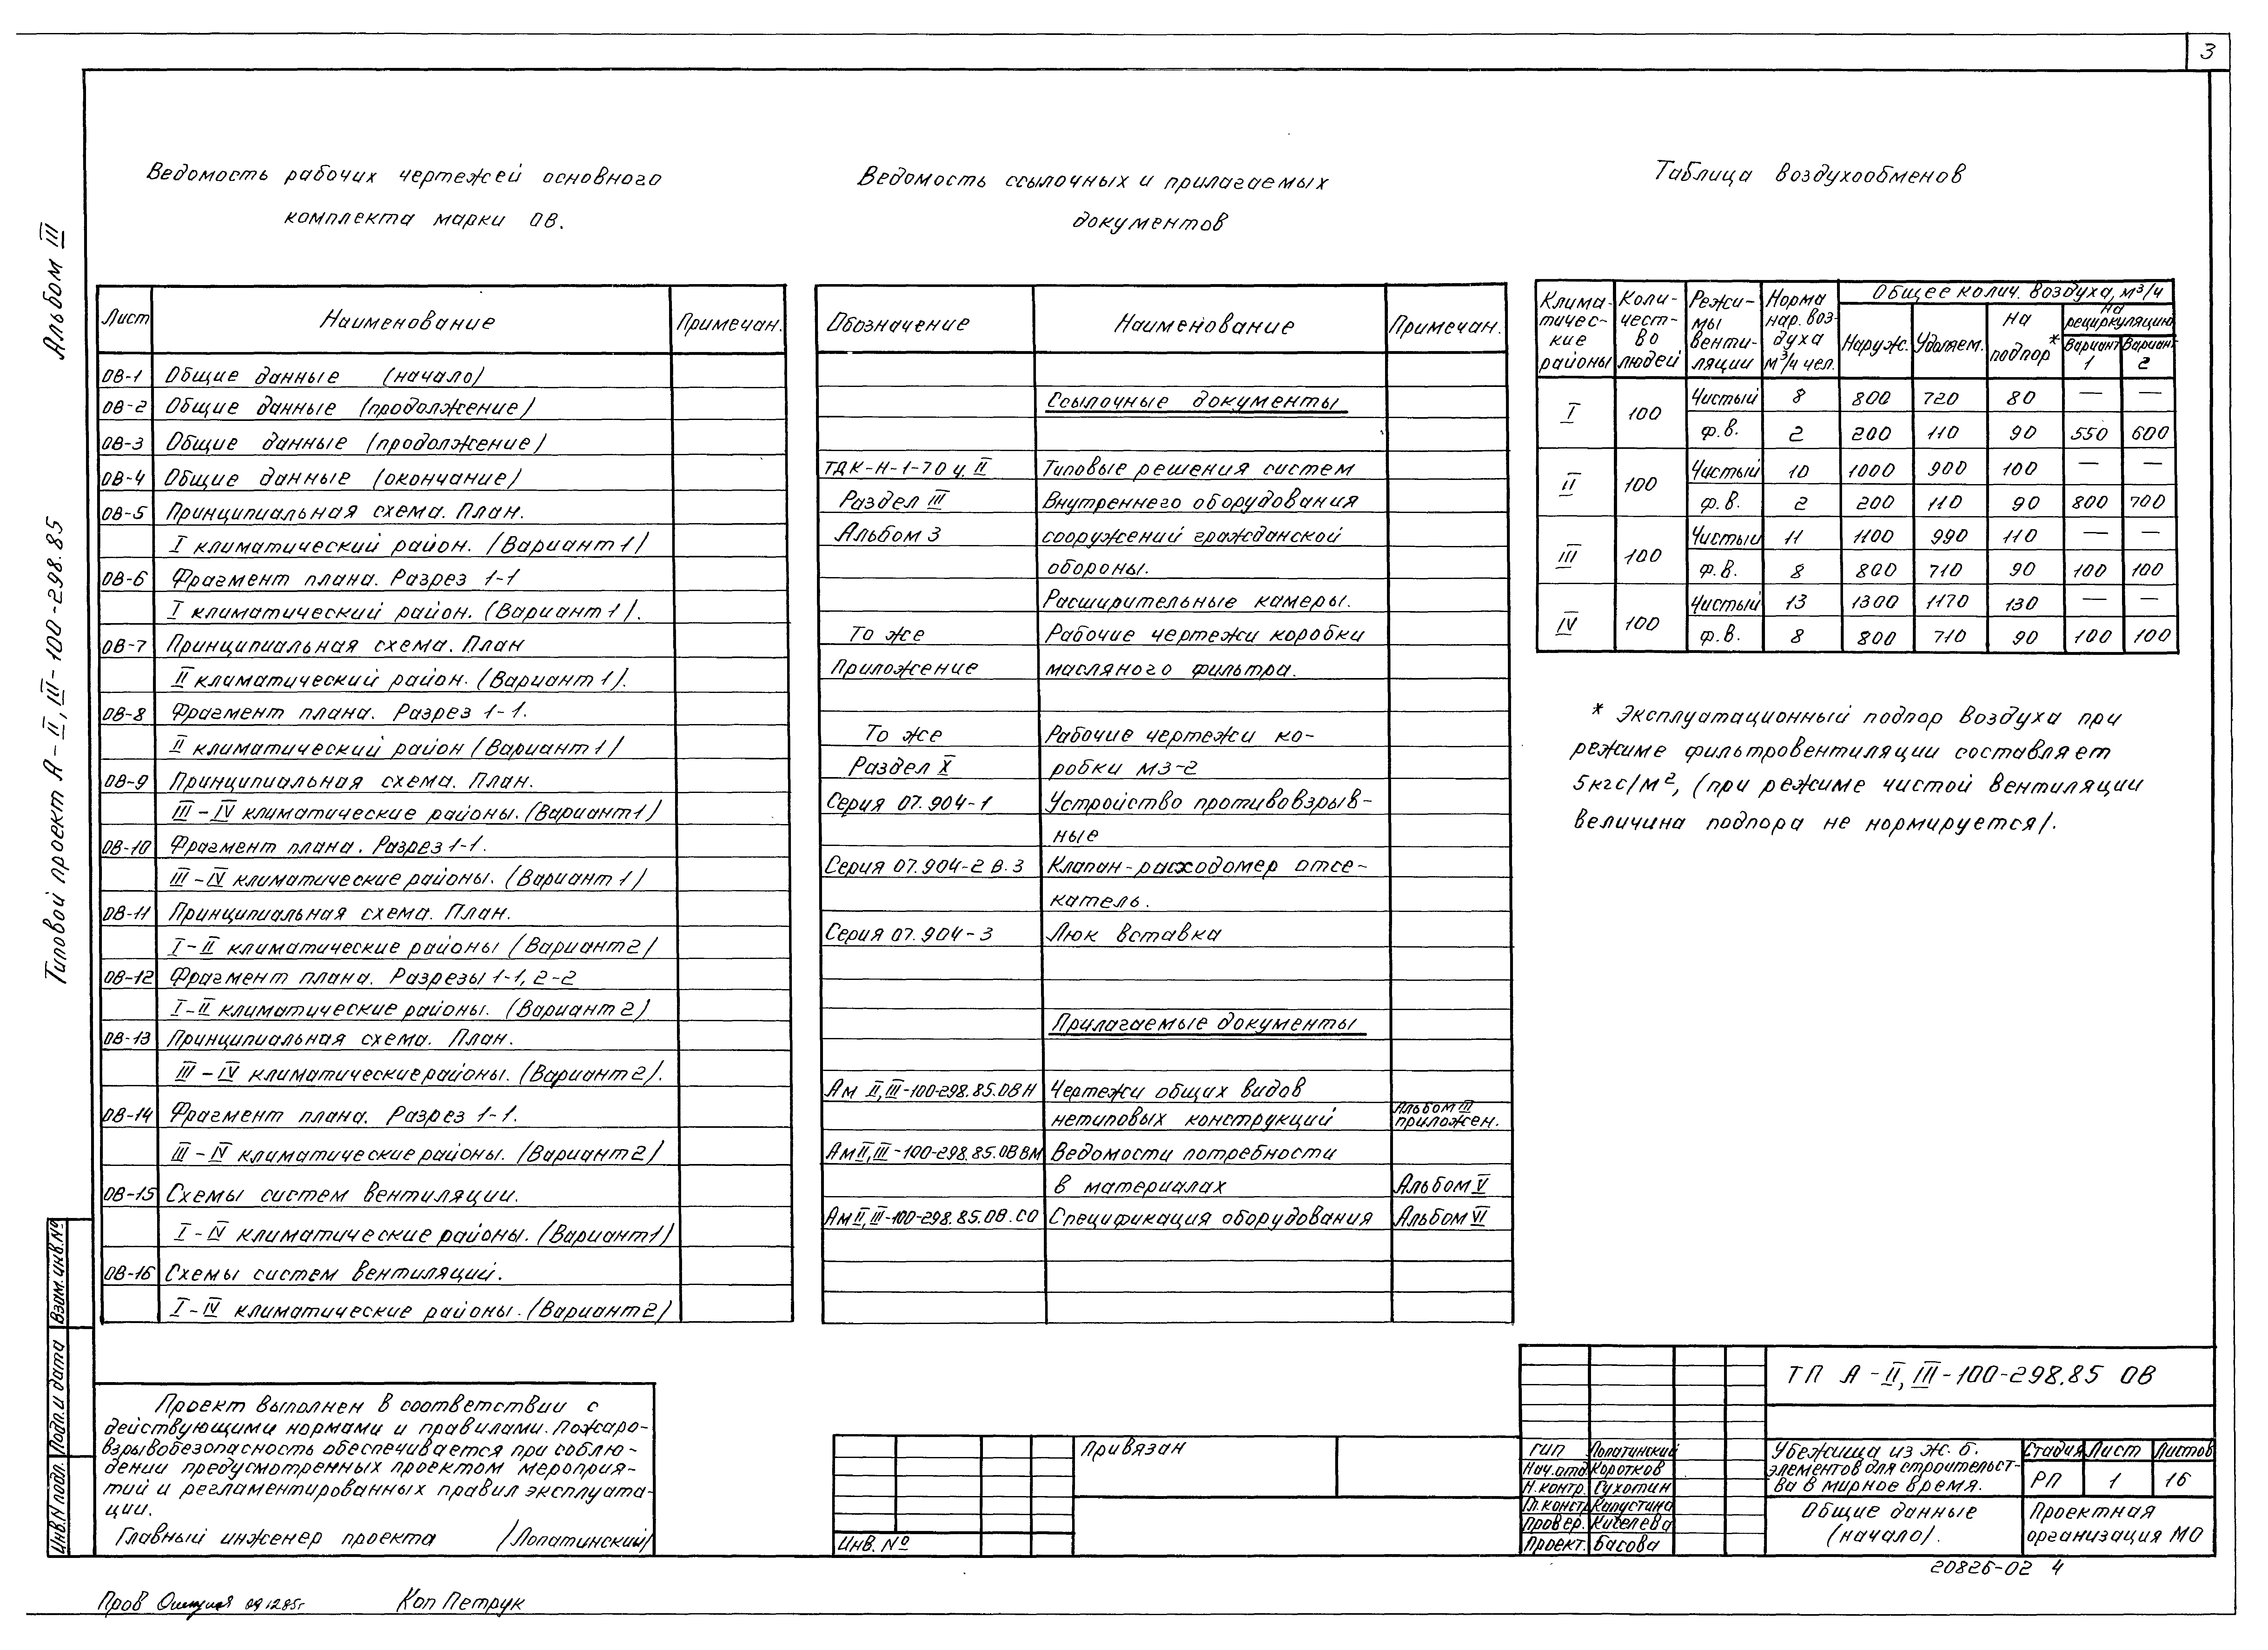 3
Альбом III
Типовой проект А-II,III-100-298.85
Ведомость рабочих чертежей основного
комплекта марки ОВ.
Лист Наименование Примечан.
ОВ-1 Общие данные (начало)
ОВ-2 Общие данные (продолжение)
ОВ-3 Общие данные (продолжение)
ОВ-4 Общие данные (окончание)
ОВ-5 Принципиальная схема. План.
I климатический район. (Вариант 1)
ОВ-6 Фрагмент плана. Разрез 1-1
I климатический район. (Вариант 1).
ОВ-7 Принципиальная схема. План
II климатический район. (Вариант 1).
ОВ-8 Фрагмент плана. Разрез 1-1.
II климатический район (Вариант 1)
ОВ-9 Принципиальная схема. План.
III-IV климатические районы. (Вариант 1)
ОВ-10 Фрагмент плана. Разрез 1-1.
III-IV климатические районы. (Вариант 1)
ОВ-11 Принципиальная схема. План.
I-II климатические районы (Вариант 2)
ОВ-12 Фрагмент плана. Разрезы 1-1, 2-2
I-II климатические районы. (Вариант 2)
ОВ-13 Принципиальная схема. План.
III-IV климатические районы. (Вариант 2).
ОВ-14 Фрагмент плана. Разрез 1-1.
III-IV климатические районы. (Вариант 2)
ОВ-15 Схемы систем вентиляции.
I-IV климатические районы. (Вариант 1)
ОВ-16 Схемы систем вентиляций.
I-IV климатические районы. (Вариант 2)
Ведомость ссылочных и прилагаемых
документов
Обозначение Наименование Примечан.
Ссылочные документы
ТДК-Н-1-70 ч. II Типовые решения систем
Раздел III Внутреннего оборудования
Альбом 3 сооружений гражданской
обороны.
Расширительные камеры.
То же Рабочие чертежи коробки
Приложение масляного фильтра.
То же Рабочие чертежи ко-
Раздел X робки МЗ-2
Серия 07.904-1 Устройство противовзрыв-
ные
Серия 07.904-2 В.3 Клапан-расходомер отсе-
катель.
Серия 07.904-3 Люк вставка
Прилагаемые документы
Ам II,III-100-298.85.ОВН Чертежи общих видов
нетиповых конструкций Альбом III приложен.
Ам II,III-100-298.85.ОВ ВМ Ведомости потребности
в материалах Альбом V
Ам II,III-100-298.85.ОВ.СО Спецификация оборудования Альбом VI
Таблица воздухообменов
Клима-тичес-кие районы Коли-чест-во людей Режи-мы венти-ляции Норма нар. воз-духа м³/ч чел. Общее колич. воздуха, м³/ч
Наруж. Удаляем. на подпор* на рециркуляцию
Вариант 1 Вариант 2
I 100 Чистый 8 800 720 80 — —
ф.в. 2 200 110 90 550 600
II 100 Чистый 10 1000 900 100 — —
ф.в. 2 200 110 90 800 700
III 100 Чистый 11 1100 990 110 — —
ф.в. 8 800 710 90 100 100
IV 100 Чистый 13 1300 1170 130 — —
ф.в. 8 800 710 90 100 100
* Эксплуатационный подпор воздуха при
режиме фильтровентиляции составляет
5кгс/м², (при режиме чистой вентиляции
величина подпора не нормируется).
Проект выполнен в соответствии с
действующими нормами и правилами. Пожаро-
взрывобезопасность обеспечивается при соблю-
дении предусмотренных проектом мероприя-
тий и регламентированных правил эксплуата-
ции.
Главный инженер проекта /Лопатинский/
Взам. инв. №
Подп. и дата
Инв. N подл.
Привязан
Инв. №
ТП А-II,III-100-298.85 ОВ
ГИП Лопатинский
Нач. отд. Коротков
Н. контр. Сухотин
Гл. констр. Капустина
Провер. Киселева
Проект. Басова
Убежища из ж. б.
элементов для строительст-
ва в мирное время.
Стадия Лист Листов
РП 1 16
Общие данные
(начало).
Проектная
организация МО
20826-02 4
Пров 09.12.85г Коп Петрук